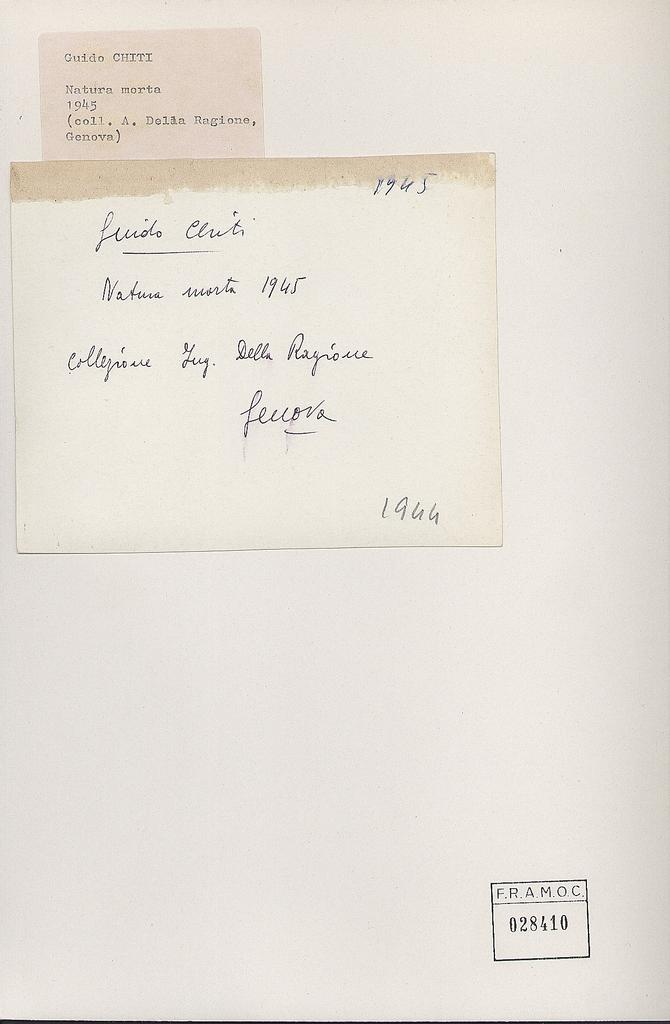 Guido CHITI
Natura morta
1945
(coll. A. Della Ragione,
Genova)
1945
Guido Chiti
Natura morta 1945
Collezione Ing. Della Ragione
Genova
1944
F.R.A.M.O.C.
028410